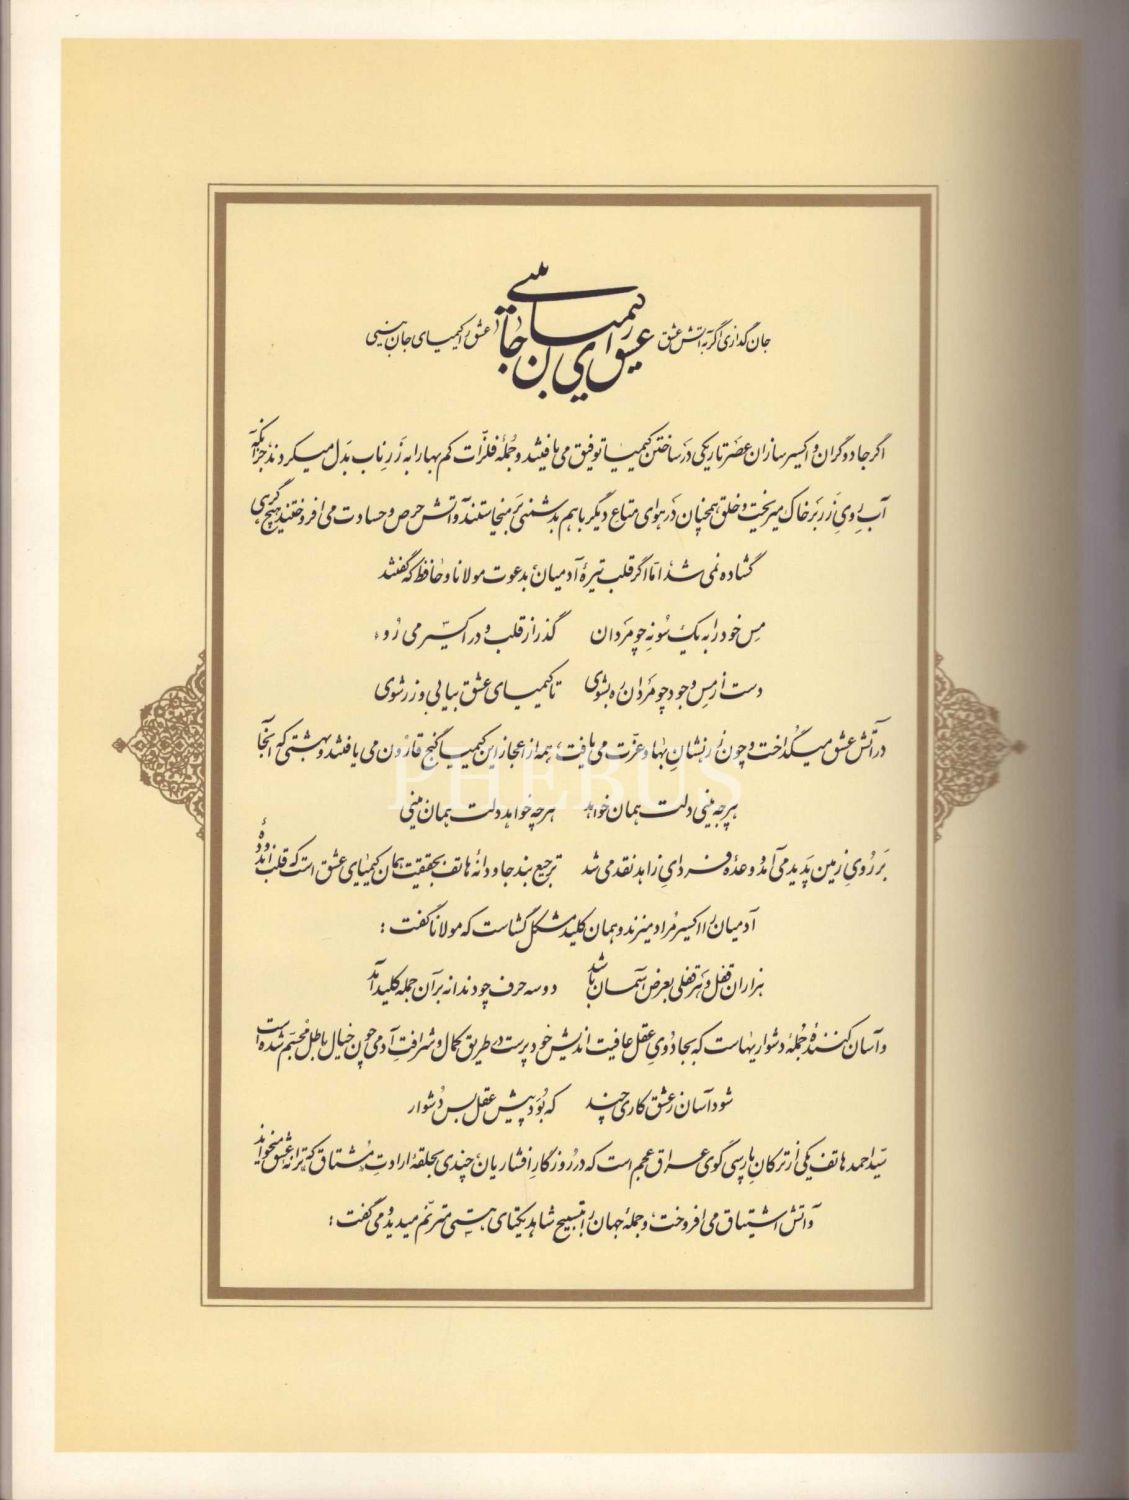 جان گدازی اگر به آتش عشق عشق را کیمیای جان بینی عشق را کیمیای جان بینی
اگر جادوگران و اکسیرسازان عصر تاریکی در ساختن کیمیا توفیق می‌یافتند و جمله فلزات کم بها را به زر ناب بدل میکردند جز آنکه
آب روی زر بر خاک میریخت و خلق همچنان در هوای متاع دیگر با هم بدشمنی بر میخاستند و آتش حرص و حسادت می افروختند هیچ گرهی
گشاده نمی شد اما اگر قلب تیرهٔ آدمیان بدعوت مولانا و حافظ که گفتند
مس خود را به یک سو نه چو مردان گذر از قلب و در اکسیر می رو
دست از مس وجود چو مردان ره بشوی تا کیمیای عشق بیابی و زر شوی
در آتش عشق میگداخت و چون زر نشان بها و عزت می یافت، همه از اعجاز این کیمیا گنج قارون می یافتند و بهشتی که آنجا
هر چه بینی دلت همان خواهد هر چه خواهد دلت همان بینی
بر روی زمین پدید می آمد و وعده فردای زاهد نقد می شد ترجیع بند جاودانهٔ هاتف بحقیقت همان کیمیای عشق است که قلب اندوه
آدمیان را اکسیر مراد میزند و همان کلید مشکل گشاست که مولانا گفت :
هزاران قفل و هر قفلی بعرض آسمان باشد دو سه حرف چو دندانه بر آن جمله کلید آمد
و آسان کنندهٔ جملهٔ دشواریهاست که بجادوی عقل عافیت اندیش خود پرست در طریق کمال و شرافت آدمی چون خیال باطل مجسم شده است
شود آسان ز عشق کاری چند که بود پیش عقل بس دشوار
سید احمد هاتف یکی از ترکان پارسی گوی عراق عجم است که در روزگار افشاریان چندی بحلقهٔ ارادت مشتاق که ترانه عشق میخواند
و آتش اشتیاق می افروخت، و جملهٔ جهان را بتسبیح شاهد یکتای هستی مترنم میدید و می گفت :
PHEBUS